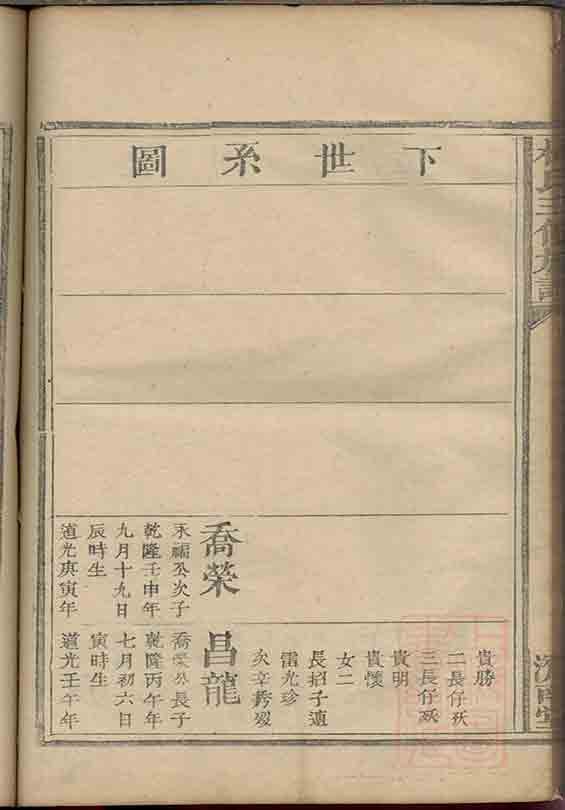 下世系圖
喬榮
永福公次子
乾隆壬申年
九月十九日
辰時生
道光庚寅年
貴勝
二長仔妖
三長仔妖
貴明
貴懷
女二
長招子連
雷光珍
次辛
昌龍
喬榮公長子
乾隆丙午年
七月初六日
寅時生
道光壬午年